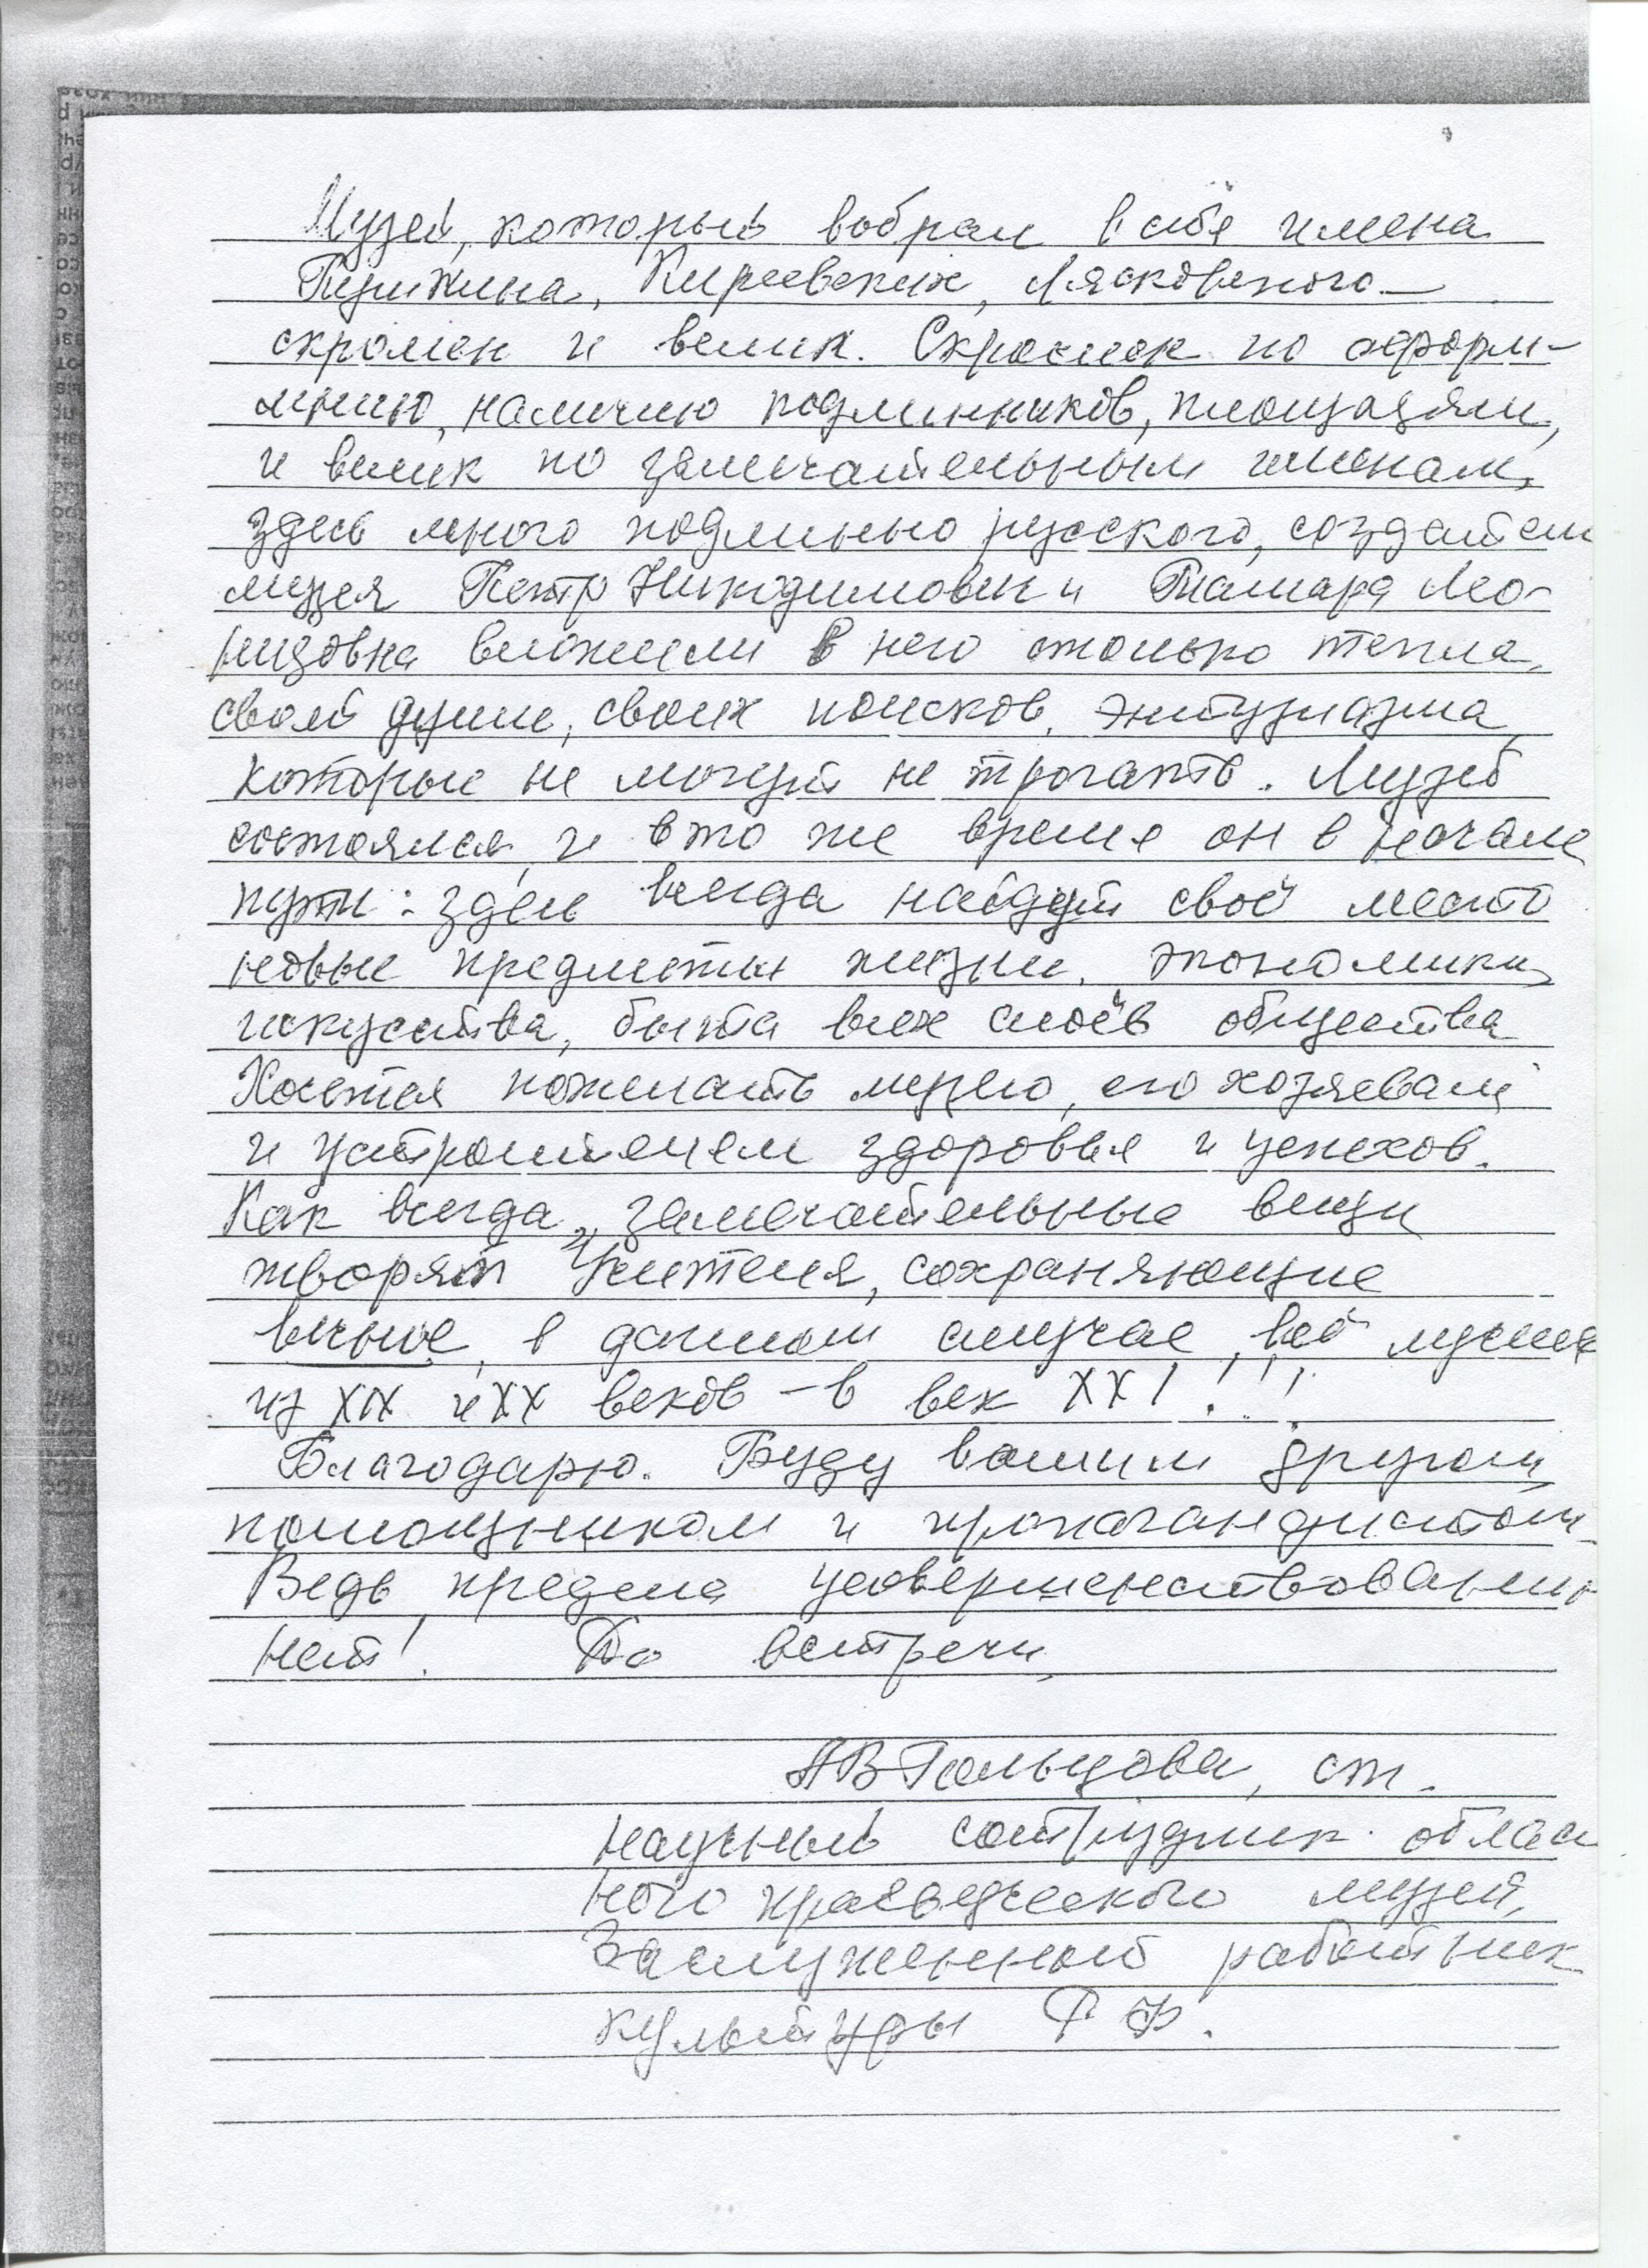 Музей, который вобрал в себя имена
Пушкина, Киреевских, Лясковского –
скромен и велик. Скромен по оформ-
лению, наличию подлинников, площадям,
и велик по замечательным именам,
здесь много подлинно русского, создатели
музея Петр Никодимович и Тамара Лео-
нидовна вложили в него столько тепла,
своей души, своих поисков, энтузиазма,
которые не могут не трогать. Музей
состоялся, и в то же время он в начале
пути: здесь всегда найдут своё место
новые предметы жизни, экономики,
искусства, быта всех слоёв общества
Хочется пожелать музею, его хозяевам
и устроителем здоровья и успехов.
Как всегда, замечательные вещи
творят Учителя, сохраняющие
вечное, в данном случае, всё лучшее
из XIX и XX веков – в век XXI!!!
Благодарю. Буду вашим другом,
помощником и пропагандистом.
Ведь предела усовершенствованию
нет! До встречи,
АВ Гольцова, ст.
научный сотрудник облас
ного краеведческого музей,
Заслуженный работник
культуры РФ.